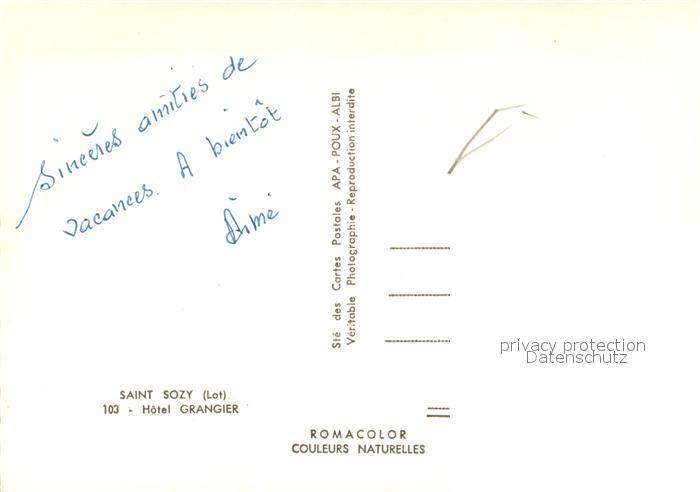 Sincères amitiés de
vacances. A bientôt
Aimé
SAINT SOZY (Lot)
103 - Hôtel GRANGIER
Sté des Cartes Postales APA - POUX - ALBI
Véritable Photographie - Reproduction interdite
ROMACOLOR
COULEURS NATURELLES
privacy protection
Datenschutz